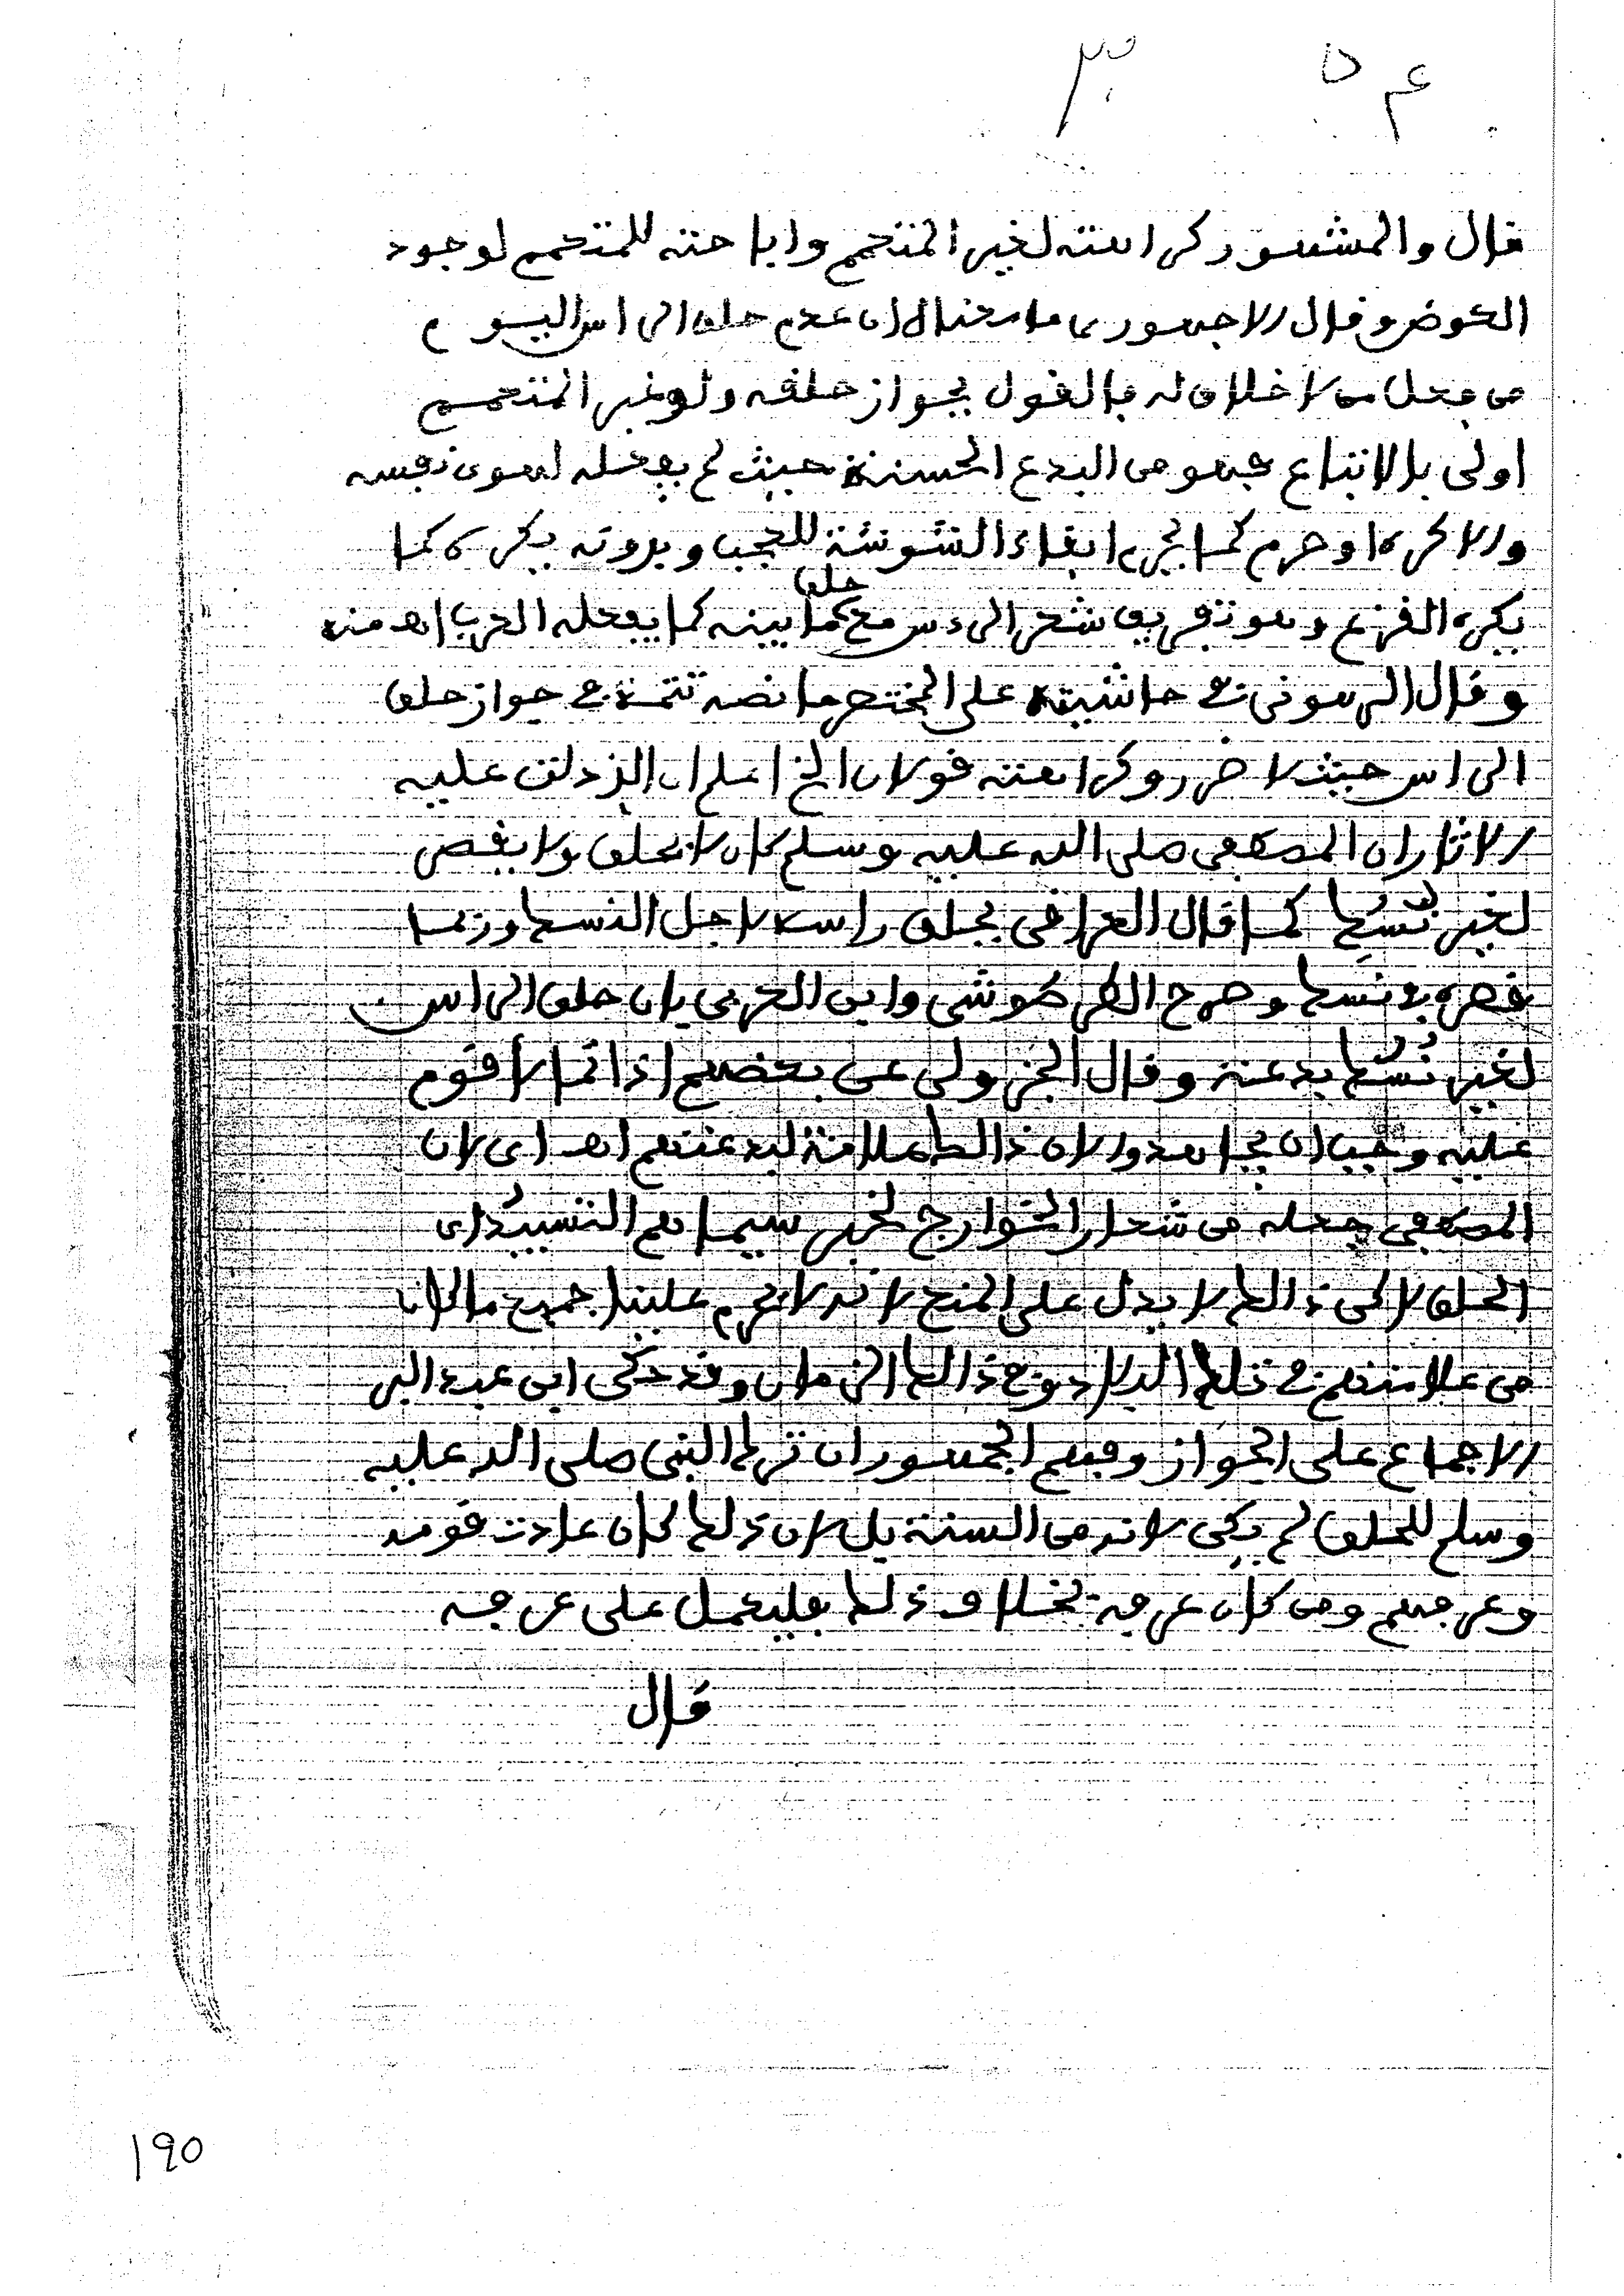 قال والمشهور كراهته لغير المتعمم واباحته للمتعمم لوجود
العوض وقال الاجهوري ما معناه ان عدم حلق الراس اليوم
من فعل من لا خلاق له فالقول بجواز حلقه ولو غير المتعمم
اولى بالاتباع فهو من البدع الحسنة حيث لم يفعله لهوى نفسه
والا كره او حرم كما يحرم ابقاء الشوشة للعجب وبدونه يكره كما
يكره القزع وهو تفريق شعر الرءس مع حلق ما بينه كما يفعله العرب اهـ منه
وقال الرهوني في حاشيته على المختصر ما نصه تتمة في جواز حلق
الراس حيث لا ضرر وكراهته قولان الخ اعلم ان الذ دلت عليه
الاثار ان المصطفى صلى الله عليه وسلم كان لا يحلق ولا يقص
لغير نُسُك كما قال العراقي يحلق راسه لاجل النسك وربما
قصره بو نسك وصرح الطرطوشي وابن العربي بان حلق الراس
لغير نُسُك بدعة وقال الجزولي عن بعضهم اذا تمالأ قوم
عليه وجب ان يجاهدوا لان ذالك علامة لبدعتهم اهـ اي لان
المصطفى جعله من شعار الخوارج لخبر سيماهم التسبيد اى
الحلق لاكن ذالك لا يدل على المنع لانه لا يحرم علينا جميع ما كان
من علامتهم في تلك البلاد وفي ذالك الزمان وقد حكى ابن عبد البر
الاجماع على الجواز وفهم الجمهور ان ترك النبي صلى الله عليه
وسلم للحلق لم يكن لانه من السنة بل لان ذلك كان عادت قومه
وعرفهم ومن كان عرفه بخلاف ذلك فليعمل على عرفه
قال
190